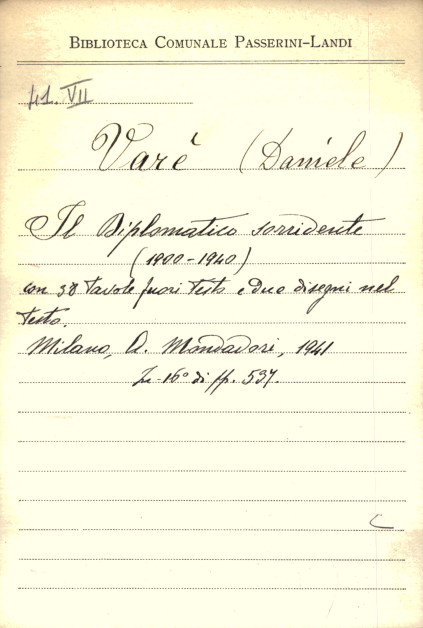 BIBLIOTECA COMUNALE PASSERINI-LANDI
41. VII
Varè (Daniele)
Il Diplomatico sorridente
(1900-1940)
con 38 tavole fuori testo e due disegni nel
testo.
Milano, A. Mondadori, 1941
In-16° di pp. 537.
C